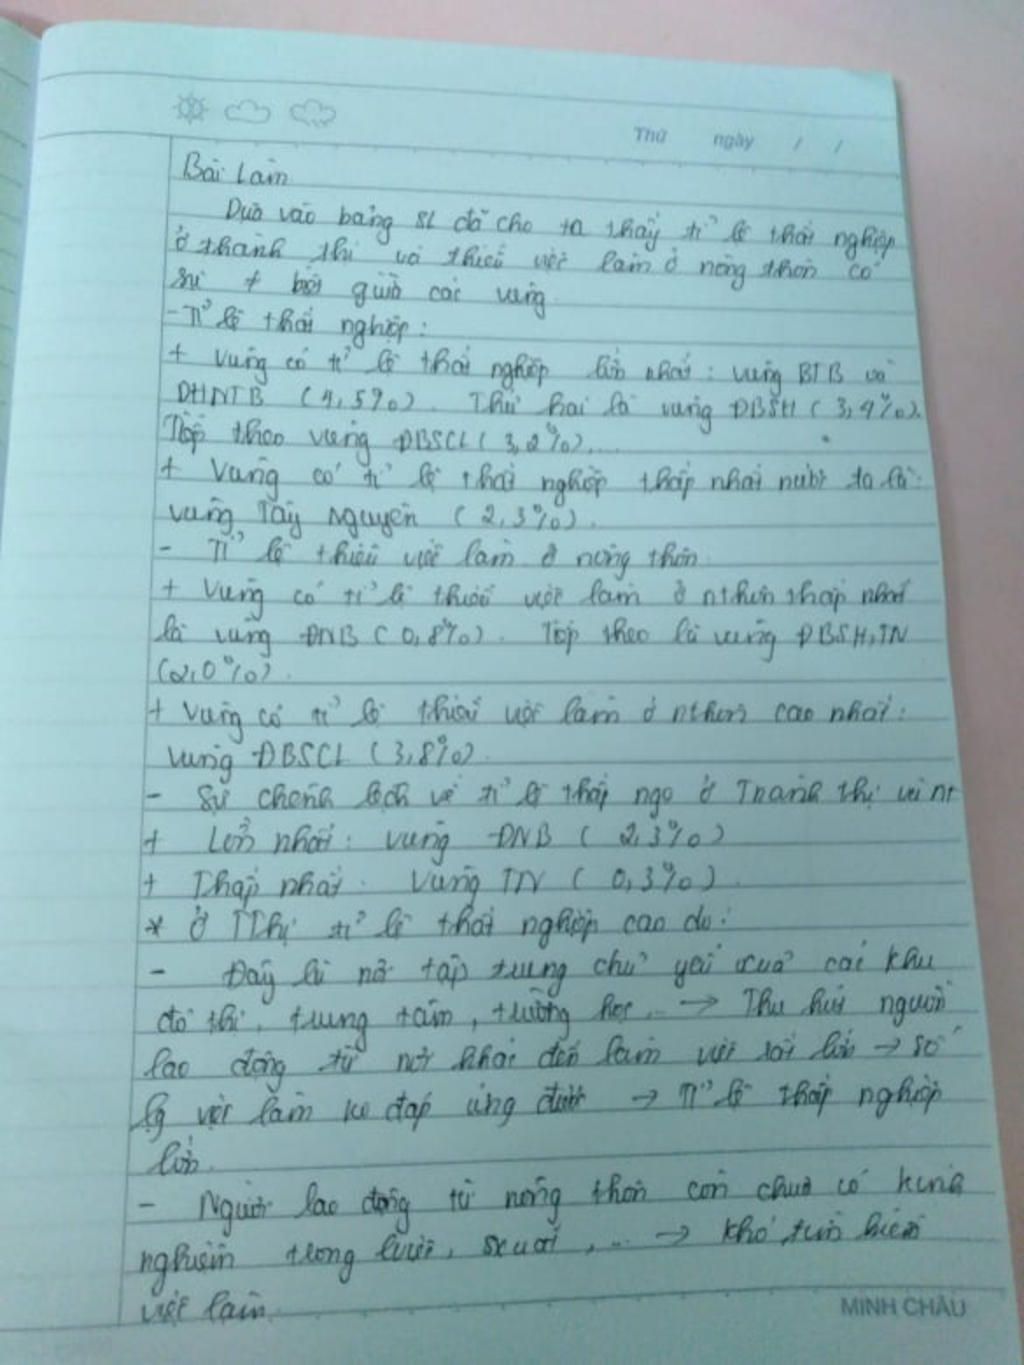 Thứ ngày / /
Bài Làm
Dựa vào bảng SL đã cho ta thấy tỉ lệ thất nghiệp
ở thành thị và thiếu việc làm ở nông thôn có
sự # biệt giữa các vùng
- Tỉ lệ thất nghiệp:
+ Vùng có tỉ lệ thất nghiệp lớn nhất: vùng BTB và
DHNTB (4,5%). Thứ hai là vùng ĐBSH (3,4%).
Tiếp theo vùng ĐBSCL (3,2%)....
+ Vùng có tỉ lệ thất nghiệp thấp nhất nước ta là:
vùng Tây Nguyên (2,3%).
- Tỉ lệ thiếu việc làm ở nông thôn
+ Vùng có tỉ lệ thiếu việc làm ở nthôn thấp nhất
là vùng ĐNB (0,8%). Tiếp theo là vùng ĐBSH, TN
(2,0%).
+ Vùng có tỉ lệ thiếu việc làm ở nthôn cao nhất:
vùng ĐBSCL (3,8%).
- Sự chênh lệch về tỉ lệ thấp ngo ở Thành thị và nt
+ Lớn nhất: vùng ĐNB (2,3%)
+ Thấp nhất: Vùng TN (0,3%).
* Ở TThị tỉ lệ thất nghiệp cao do:
- Đây là nơi tập trung chủ yếu của các khu
đô thị, trung tâm, trường học... → Thu hút người
lao động từ nơi khác đến làm việc rất lớn → số
lg việc làm ko đáp ứng được → Tỉ lệ thấp nghiệp
lớn.
- Người lao động từ nông thôn còn chưa có kinh
nghiệm trong lười, sxuất, ... → khó tìm kiếm
việc làm.
MINH CHÂU